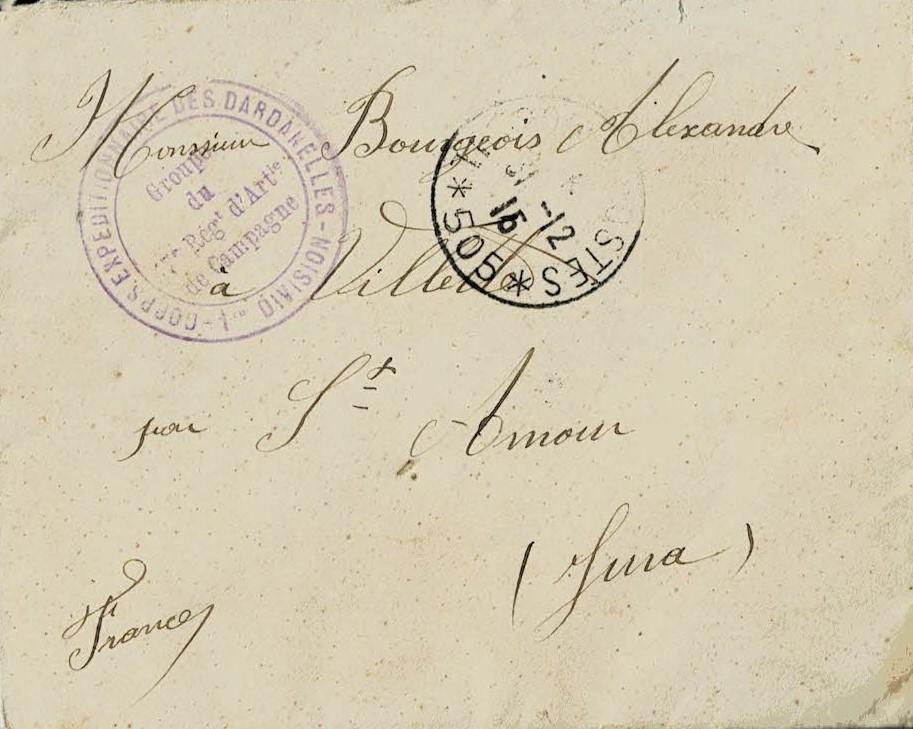 Monsieur Bourgeois Alexandre
à Villette
par St Amour
(Jura)
France
CORPS EXPEDITIONNAIRE DES DARDANELLES - 1re DIVISION
Groupe
du
Régt d'Artie
de Campagne
POSTES
* 505 *
-12
15